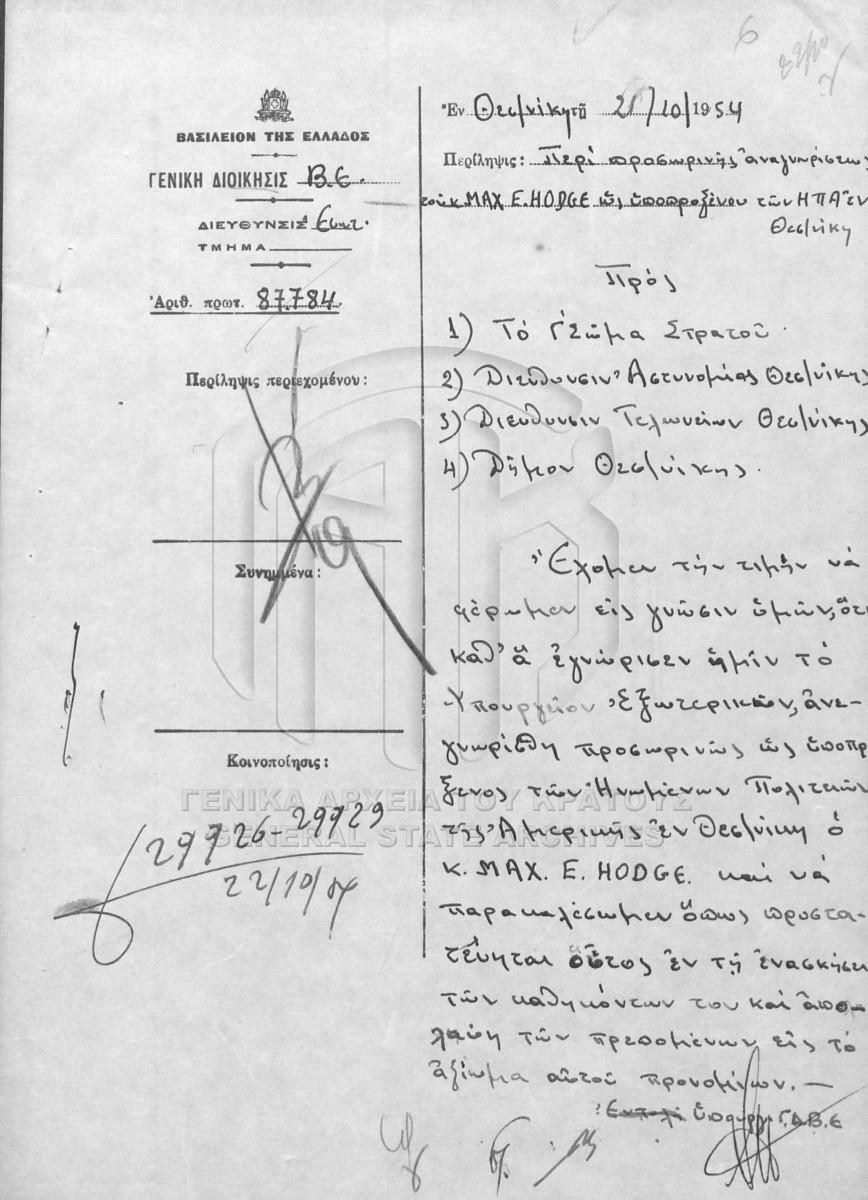 6
ΒΑΣΙΛΕΙΟΝ ΤΗΣ ΕΛΛΑΔΟΣ
ΓΕΝΙΚΗ ΔΙΟΙΚΗΣΙΣ Β.Ε.
ΔΙΕΥΘΥΝΣΙΣ Εσωτ.
ΤΜΗΜΑ
Ἀριθ. πρωτ. 87.784
Περίληψις περιεχομένου:
Συνημμένα:
Κοινοποίησις:
29926-29929
22/10/54
Ἐν Θεσ/νίκῃ τῇ 21/10/1954
Περίληψις: Περὶ προσωρινῆς ἀναγνωρίσεως
τοῦ κ. MAX E. HODGE ὡς ὑποπροξένου τῶν ΗΠΑ ἐν
Θεσ/νίκῃ
Πρὸς
1) Τὸ Γ΄ Σῶμα Στρατοῦ.
2) Διεύθυνσιν Ἀστυνομίας Θεσ/νίκης
3) Διεύθυνσιν Τελωνείων Θεσ/νίκης
4) Δῆμον Θεσ/νίκης.
Ἔχομεν τὴν τιμὴν νὰ
φέρωμεν εἰς γνῶσιν ὑμῶν, ὅτι
καθ' ἃ ἐγνώρισεν ἡμῖν τὸ
Ὑπουργεῖον Ἐξωτερικῶν, ἀνε-
γνωρίσθη προσωρινῶς ὡς ὑποπρ
ξενος τῶν Ἡνωμένων Πολιτειῶν
τῆς Ἀμερικῆς ἐν Θεσ/νίκῃ ὁ
κ. MAX. E. HODGE. καὶ νὰ
παρακαλέσωμεν ὅπως προστα-
τεύηται οὗτος ἐν τῇ ἐνασκήσει
τῶν καθηκόντων του καὶ ἀπο-
λαύῃ τῶν πρεπομένων εἰς τὸ
ἀξίωμα αὐτοῦ προνομίων. —
Γ.Δ.Β.Ε
ΓΕΝΙΚΑ ΑΡΧΕΙΑ ΤΟΥ ΚΡΑΤΟΥΣ
GENERAL STATE ARCHIVES